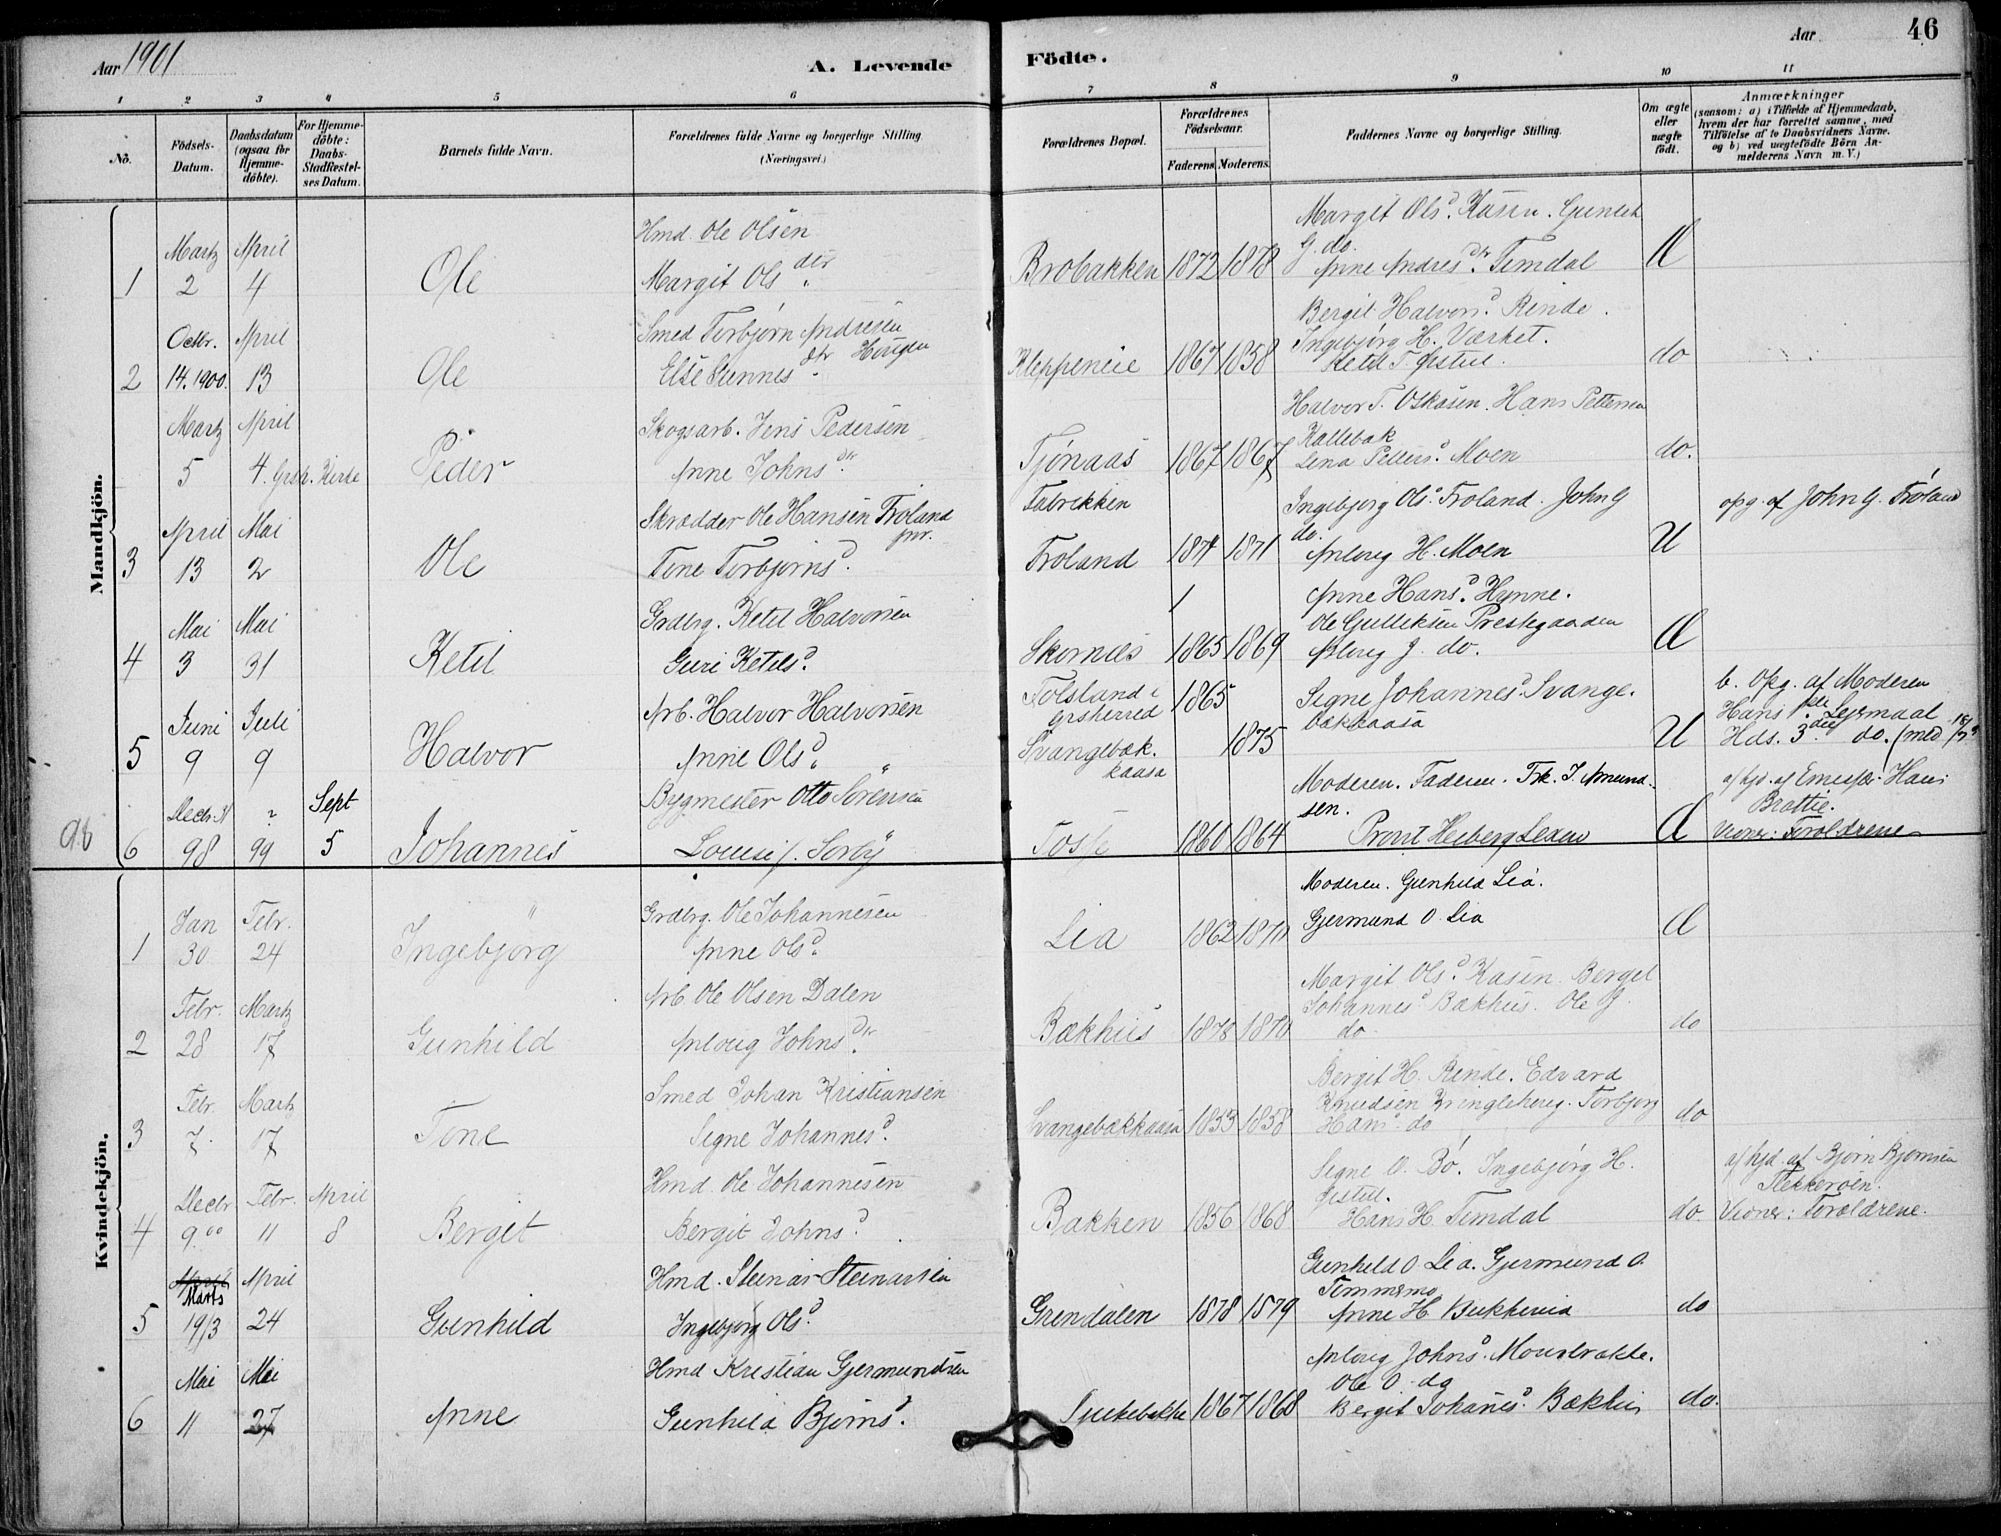 Aar 1901
A. Levende
Födte.
Aar
46
1 2 3 4 5 6 7 8 9 10 11
No.
Födsels-Datum.
Daabsdatum (ogsaa for Hjemme-döbte).
For Hjemme-döbte: Daabs-Stadfæstel-ses Datum.
Barnets fulde Navn.
Forældrenes fulde Navne og borgerlige Stilling.
(Næringsvei.)
Forældrenes Bopæl.
Forældrenes Födselsaar.
Faderens. Moderens.
Faddernes Navne og borgerlige Stilling.
Om ægte eller uægte födt.
Anmærkninger
(saasom: a) i Tilfælde af Hjemmedaab,
hvem der har forrettet samme, med
Tilföielse af to Daabsvidners Navne.
og b) ved uægtefödte Börn An-
melderens Navn m. V.)
Mandkjön.
1 Martz 2 April 4 Ole
Hmd. Ole Olsen
Margit Ols dtr.
Brobakken 1872 1878
Margit Olsd. Kåsen.
G. do.
Anne Andres dtr. Timdal
Æ
2 Octbr. 14. 1900. April 13 Ole
Smed Torbjørn Andresen
Else Sunnes dtr. Haugen
Kleppeneie 1867 1858
Bergit Halvorsd. Rinde.
Ingebjørg H. Værket.
do
Martz 5 April 4. Grsh. Kirke Peder
Skogsarb. Jens Pedersen
Anne Johns dtr.
Tjønaas 1867 1867
Halvor T. Oskåsen. Hans Pettersen
Kallebak
Lena Petters d. Moen
do.
3 April 13 Mai 2 Ole
Skrædder Ole Hansen Froland
Tone Torbjørnsd.
Fabrikken
Froland 1874 1871
Ingebjørg Olsd. Froland. John G
do.
Aslaug H. Moen
U
opg. af John G. Froland
4 Mai 3 Mai 31 Ketil
Grdbrg. Ketil Halvorsen
Guri Ketilsd.
Skornes 1865 1869
Anne Hansd. Hynne.
Ole Gulliksen Prestegaarden
Aslaug J. do.
Æ
5 Juni 9 Juli 9 Halvor
Arb. Halvor Halvorsen
Anne Olsd.
Folslund i
Grsherred 1865
Svangebæk.
kaasa 1875
Signe Johannesd. Svange.
bækkaasa
U
b. Opg. af Moderen
Hans 1ste Leiermaal
Hds. 3die do. (med
98
6 Decbr. 98 ? 99 Sept 5 Johannes
Bygmester Otto Sørensen
Louise J. Sørby
1860 1864
Moderen. Faderen. Frk. J. Amund.
sen.
Provst Heiberg
Æ
Hans
Brattie.
Vidner: Forældrene
Kvindekjön.
1 Jan 30 Febr. 24 Ingebjørg
Grdbrg. Ole Johannesen
Anne Olsd.
Lia 1862
Moderen. Gunhild Lia.
Gjermund O. Lia
Æ
2 Febr. 28 Martz 17 Gunhild
Arb. Ole Olsen Dalen
Aslaug Johns dtr.
Bækhus 1878 1870
Margit Olsd. Kåsen. Bergit
Johannesd. Bækhus. Ole J.
do
do
3 Febr. 7. Martz 17 Tone
Smed Johan Kristiansen
Signe Johannesd.
Svangebækkaasa 1853 1858
Bergit H. Rinde. Edvard
Knudsen Kringlehaug. Torbjørg
Hansd. do
do
4 Decbr 9.00 Febr. 11 April 8 Bergit
Hmd. Ole Johannesen
Bergit Johnsd.
Bakken 1856 1868
Signe O. Bø. Ingebjørg H.
Hans H. Timdal
do.
af hjd. af Bjørn Bjørnsen
Flekkerøen.
Vidner: Forældrene.
5 April Marts 19/3 April 24 Gunhild
Hmd. Steinar Steinarsen
Ingebjørg Olsd.
Grendalen 1878 1879
Gunhild O. Lia. Gjermund O.
Timmemo
Anne H. Bukkerud
do
6 Mai 11 Mai 27 Anne
Hmd Kristian Gjermundsen
Gunhild Bjørnsd.
1867 1868
Aslaug Johnsd.
Ole O. do
Bergit Johannesd. Bækhus
do.